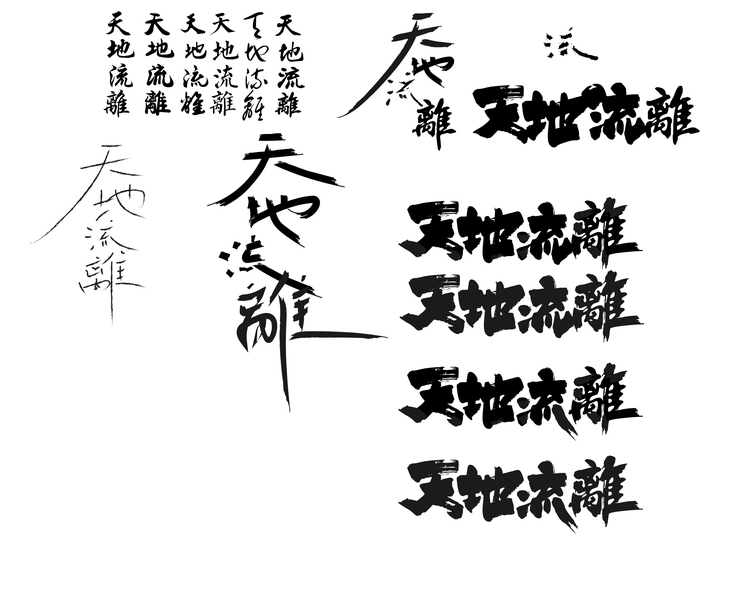 天地流離
天地流離
天地流離
天地流離
天地流離
天地流離
天地流離
流
天地流離
天地流離
天地流離
天地流離
天地流離
天地流離
天地流離